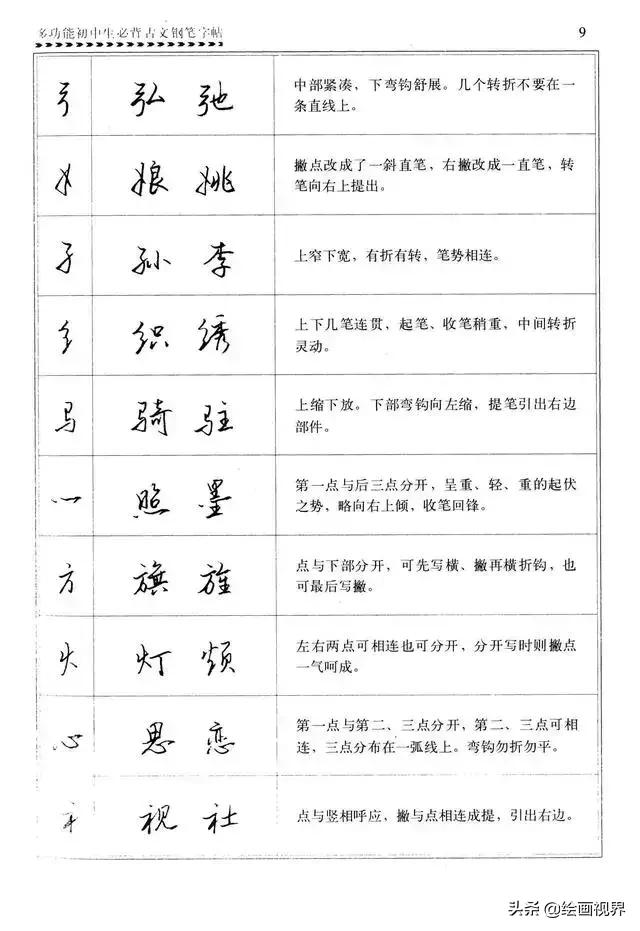 多功能初中生必背古文钢笔字帖 9
弓 弘 弛 中部紧凑，下弯钩舒展。几个转折不要在一
条直线上。
女 娘 姚 撇点改成了一斜直笔，右撇改成一直笔，转
笔向右上提出。
子 孙 李 上窄下宽，有折有转，笔势相连。
纟 织 绣 上下几笔连贯，起笔、收笔稍重，中间转折
灵动。
马 骑 驻 上缩下放。下部弯钩向左缩，提笔引出右边
部件。
灬 照 墨 第一点与后三点分开，呈重、轻、重的起伏
之势，略向右上倾，收笔回锋。
方 旗 旌 点与下部分开，可先写横、撇再横折钩，也
可最后写撇。
火 灯 烦 左右两点可相连也可分开，分开写时则撇点
一气呵成。
心 思 恋 第一点与第二、三点分开，第二、三点可相
连，三点分布在一弧线上。弯钩勿折勿平。
礻 视 社 点与竖相呼应，撇与点相连成提，引出右边。
头条 @绘画视界